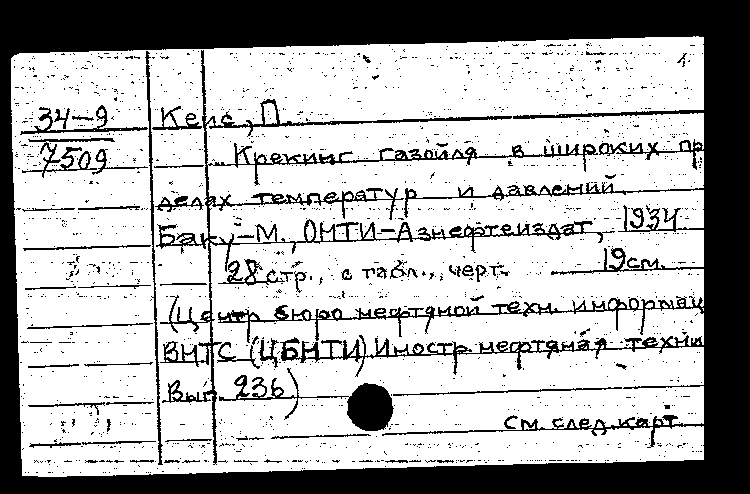 34-9 Кейс, П.
7509 Крекинг газойля в широких пр
делах температур и давлений.
Баку-М., ОНТИ-Азнефтеиздат, 1934
28 стр., с табл., черт. 19 см.
(Центр бюро нефтяной техн. информац
ВНТС (ЦБНТИ) Иностр. нефтяная техни
Вып. 236)
См. след. карт.